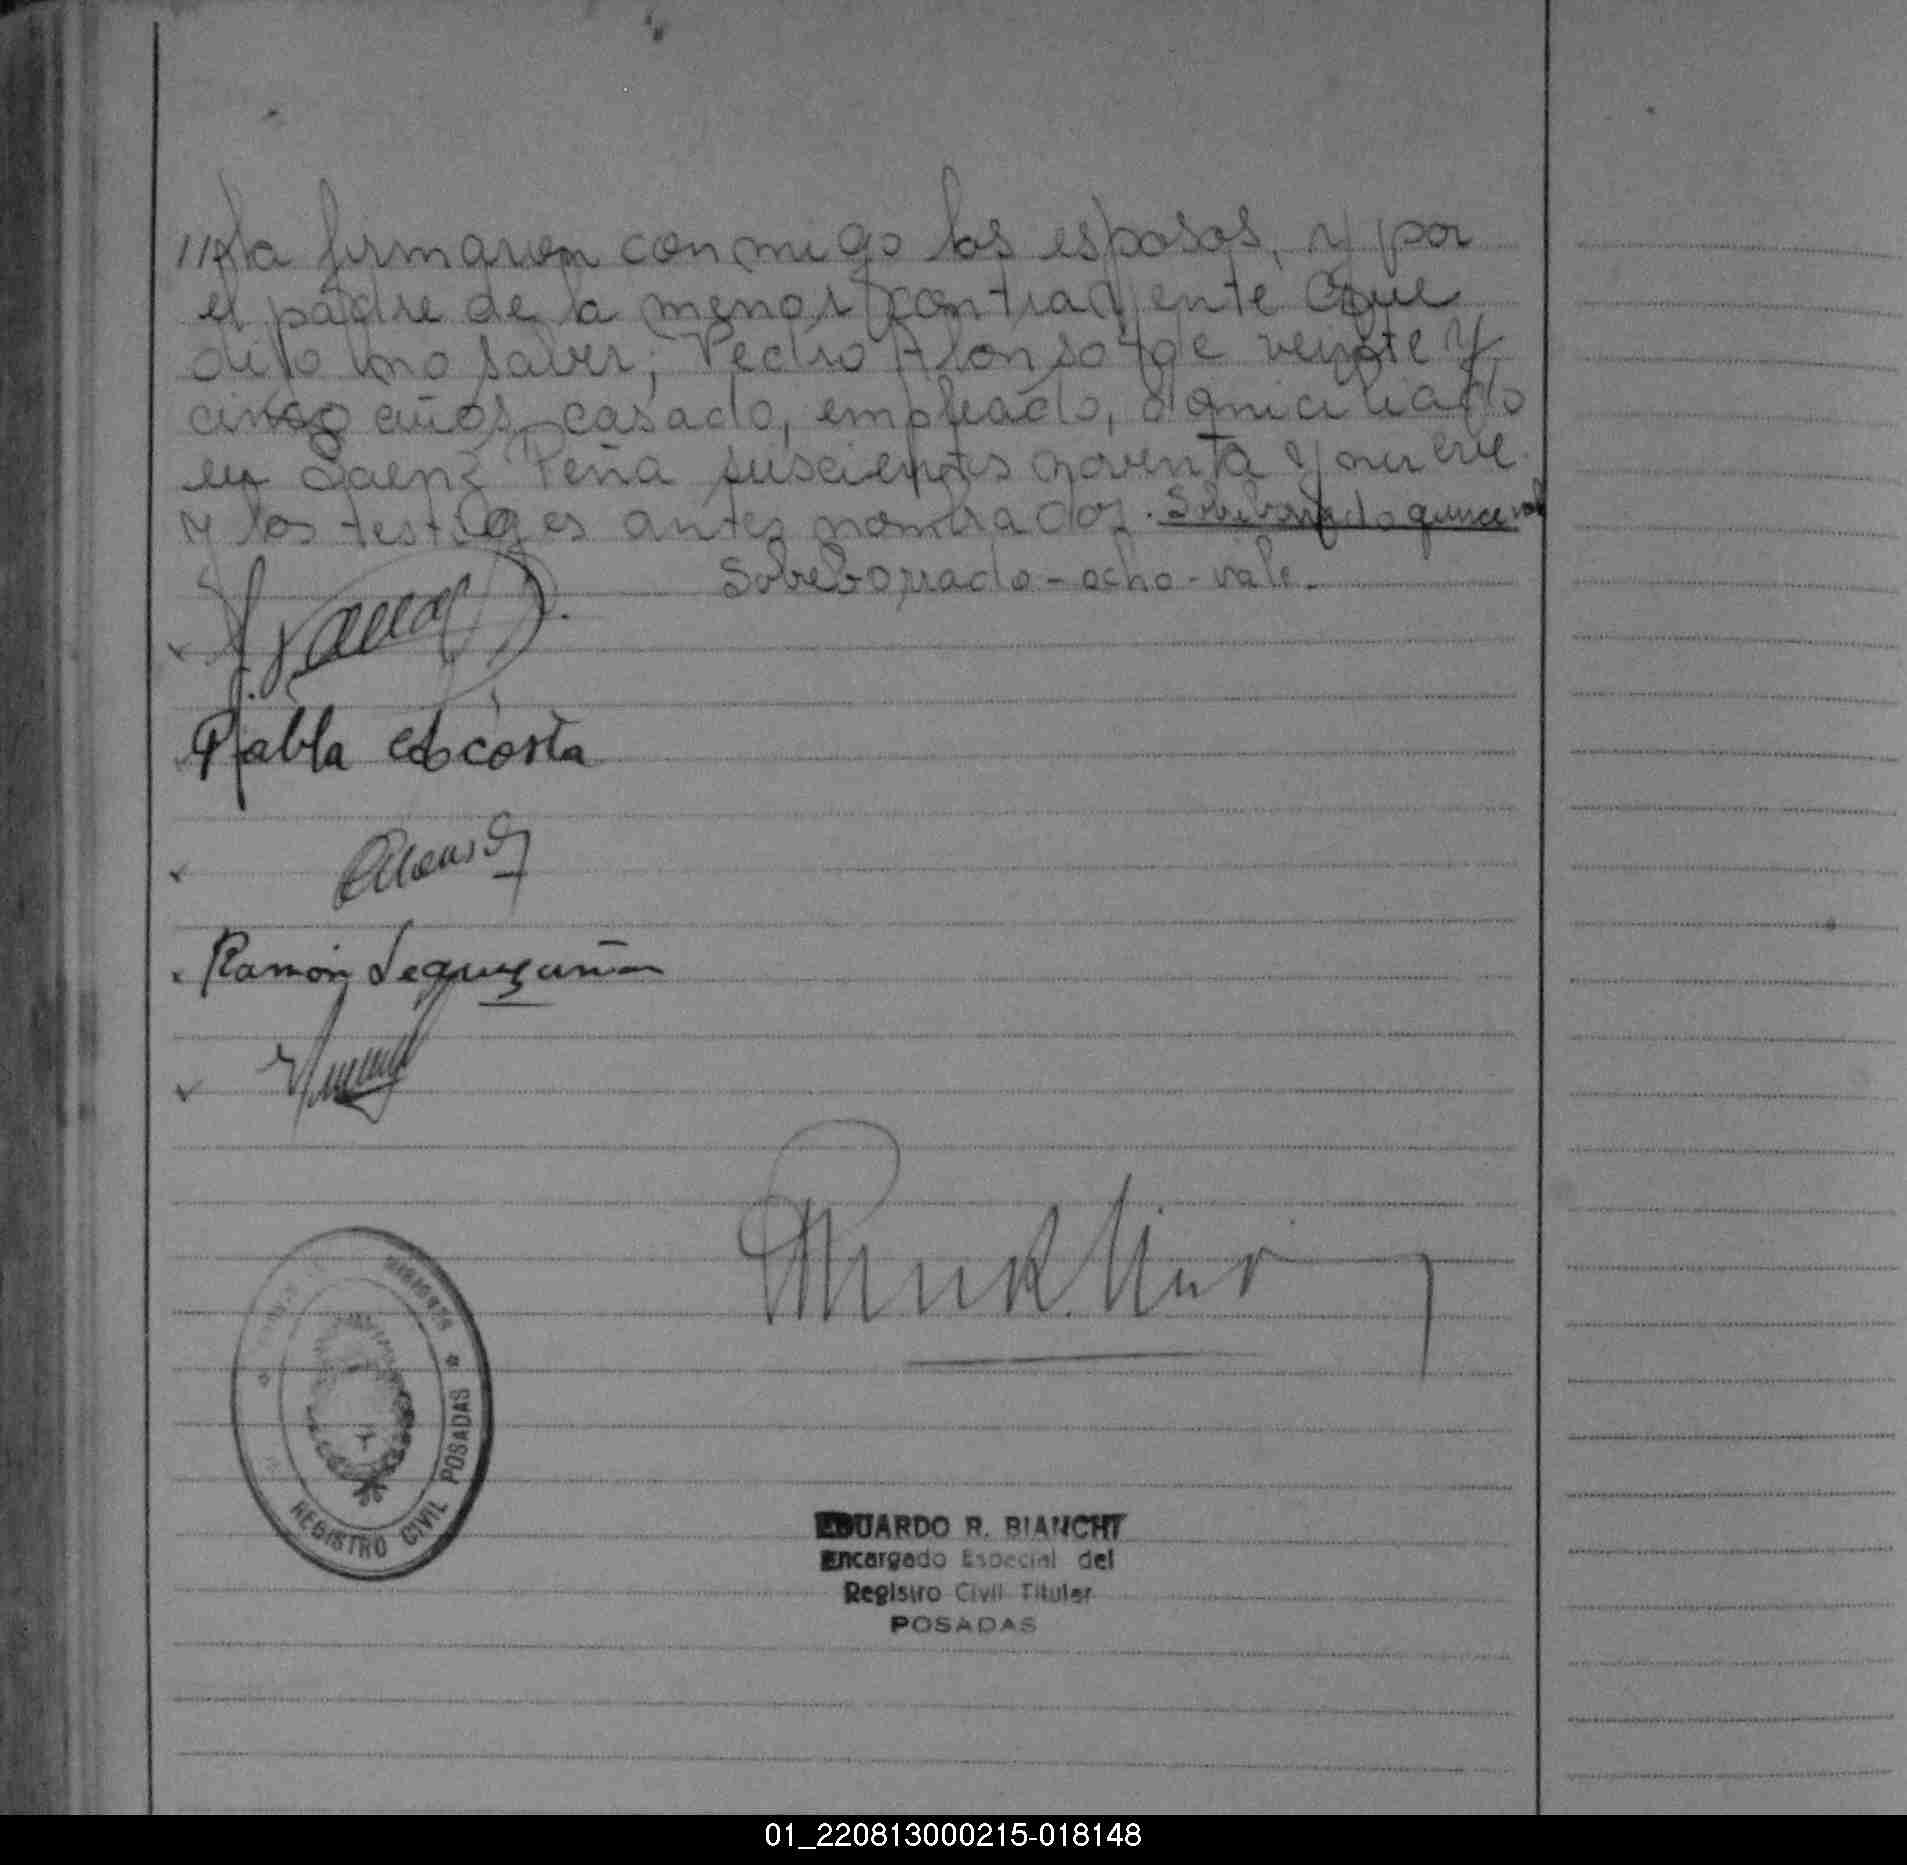 ///la firmaron conmigo los esposos, y por
el padre de la menor contrayente que
dijo no saber; Pedro Alonso, de veinte y
cinco años, casado, empleado, domiciliado
en Saenz Peña suscientos noventa y nueve
y los testigos antes nombrados. Sobreborrado quince vale
Sobreborrado - ocho - vale.
Pabla Acosta
Alonso
Ramón
MISIONES * REGISTRO CIVIL POSADAS
EDUARDO R. BIANCHI
Encargado Especial del
Registro Civil Titular
POSADAS
01_220813000215-018148